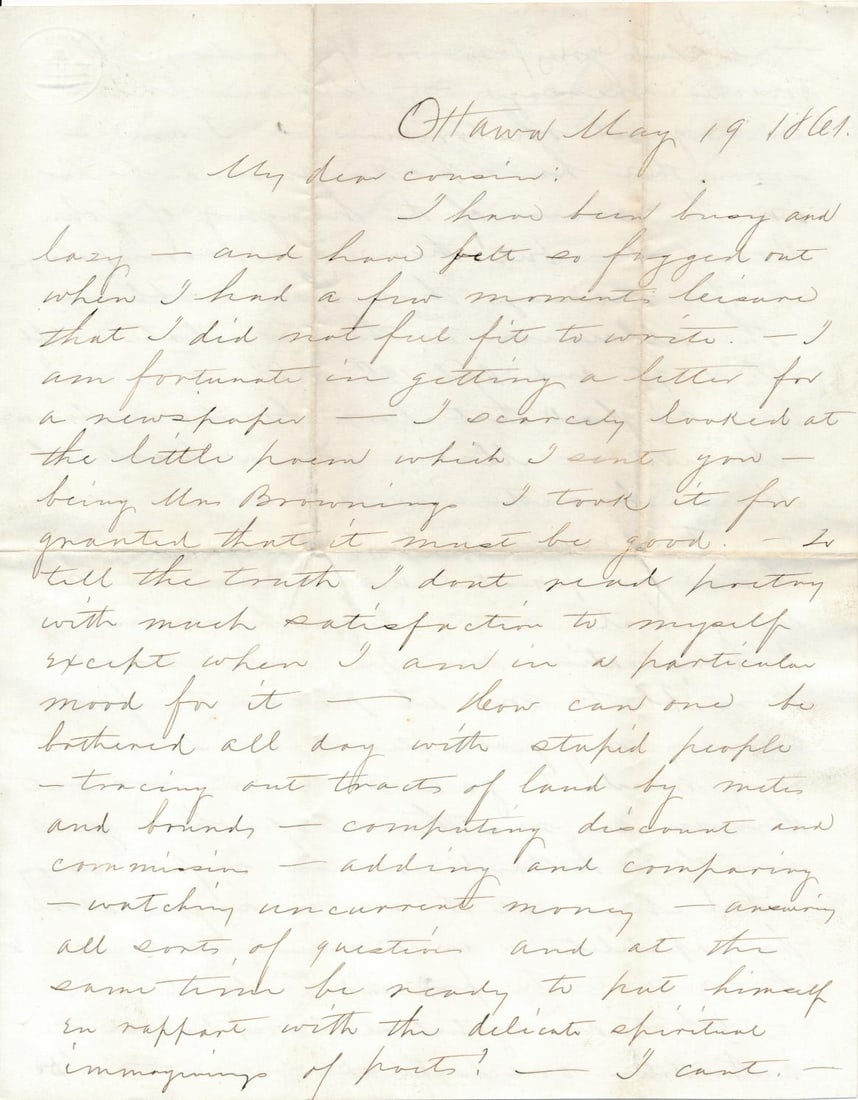 Ottawa May 19 1861.
My dear cousin:
I have been busy and
lazy — and have felt so fagged out
when I had a few moments leisure
that I did not feel fit to write. — I
am fortunate in getting a letter for
a newspaper — I scarcely looked at
the little poem which I sent you —
being Mrs Brownings I took it for
granted that it must be good. — To
tell the truth I dont read poetry
with much satisfaction to myself
except when I am in a particular
mood for it — How can one be
bothered all day with stupid people
— tracing out tracts of land by metes
and bounds — computing discount and
commission — adding and comparing
— watching uncurrent money — answering
all sorts of question and at the
same time be ready to put himself
en rapport with the delicate spiritual
immaginings of poets? — I cant. —